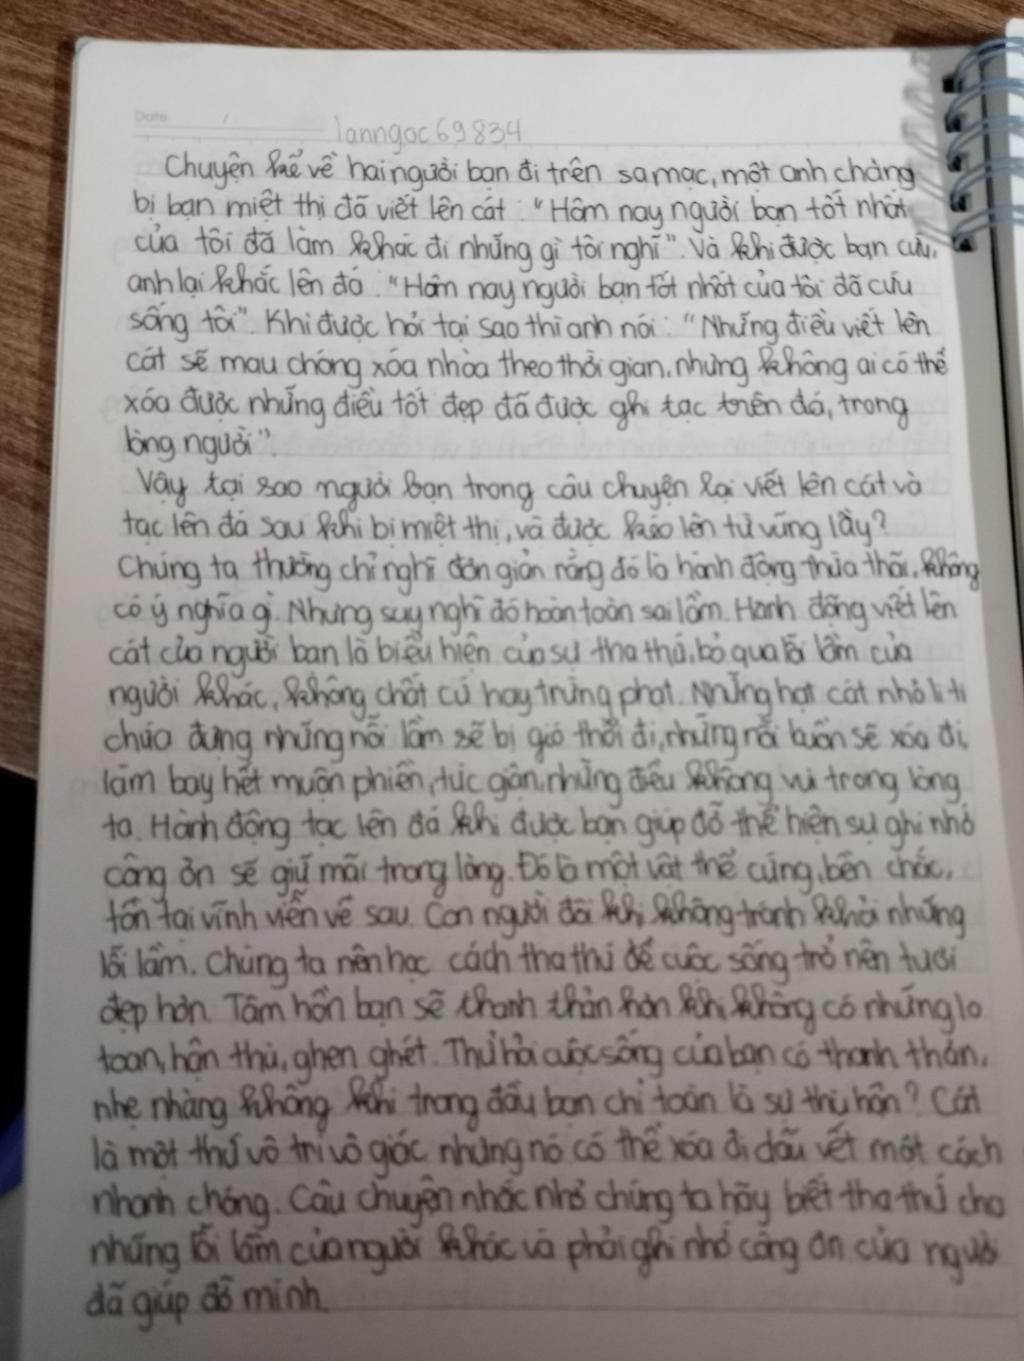 Date. /
lanngoc69834
Chuyện kể về hai người bạn đi trên sa mạc, một anh chàng
bị bạn miệt thị đã viết lên cát: "Hôm nay người bạn tốt nhất
của tôi đã làm khác đi những gì tôi nghĩ". Và khi được bạn cứu,
anh lại khắc lên đá: "Hôm nay người bạn tốt nhất của tôi đã cứu
sống tôi". Khi được hỏi tại sao thì anh nói: "Những điều viết lên
cát sẽ mau chóng xóa nhòa theo thời gian, nhưng không ai có thể
xóa được những điều tốt đẹp đã được ghi tạc trên đá, trong
lòng người".
Vậy tại sao người bạn trong câu chuyện lại viết lên cát và
tạc lên đá sau khi bị miệt thị, và được kéo lên từ vũng lầy?
Chúng ta thường chỉ nghĩ đơn giản rằng đó là hành động thừa thãi, không
có ý nghĩa gì. Nhưng suy nghĩ đó hoàn toàn sai lầm. Hành động viết lên
cát của người bạn là biểu hiện của sự tha thứ, bỏ qua lỗi lầm của
người khác, không chất cứ hay trừng phạt. Những hạt cát nhỏ li ti
chứa đựng những nỗi lầm sẽ bị gió thổi đi, những nỗi buồn sẽ xóa đi,
làm bay hết muộn phiền, tức giận, những điều không vui trong lòng
ta. Hành động tạc lên đá khi được bạn giúp đỡ thể hiện sự ghi nhớ
công ơn sẽ giữ mãi trong lòng. Đó là một vật thể cứng, bền chắc,
tồn tại vĩnh viễn về sau. Con người đôi khi không tránh khỏi những
lỗi lầm. Chúng ta nên học cách tha thứ để cuộc sống trở nên tươi
đẹp hơn. Tâm hồn bạn sẽ thanh thản hơn khi không có những lo
toan, hận thù, ghen ghét. Thử hỏi cuộc sống của bạn có thanh thản,
nhẹ nhàng không khi trong đầu bạn chỉ toàn là sự thù hận? Cát
là một thứ vô tri vô giác nhưng nó có thể xóa đi dấu vết một cách
nhanh chóng. Câu chuyện nhắc nhở chúng ta hãy biết tha thứ cho
những lỗi lầm của người khác và phải ghi nhớ công ơn của người
đã giúp đỡ mình.